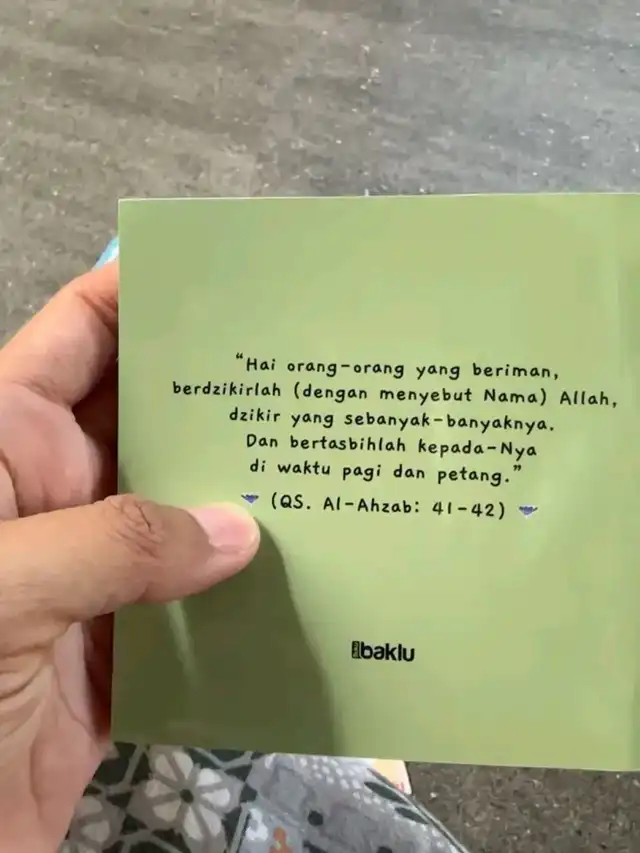 "Hai orang-orang yang beriman,
berdzikirlah (dengan menyebut Nama) Allah,
dzikir yang sebanyak-banyaknya.
Dan bertasbihlah kepada-Nya
di waktu pagi dan petang."
(QS. Al-Ahzab: 41-42)
baklu